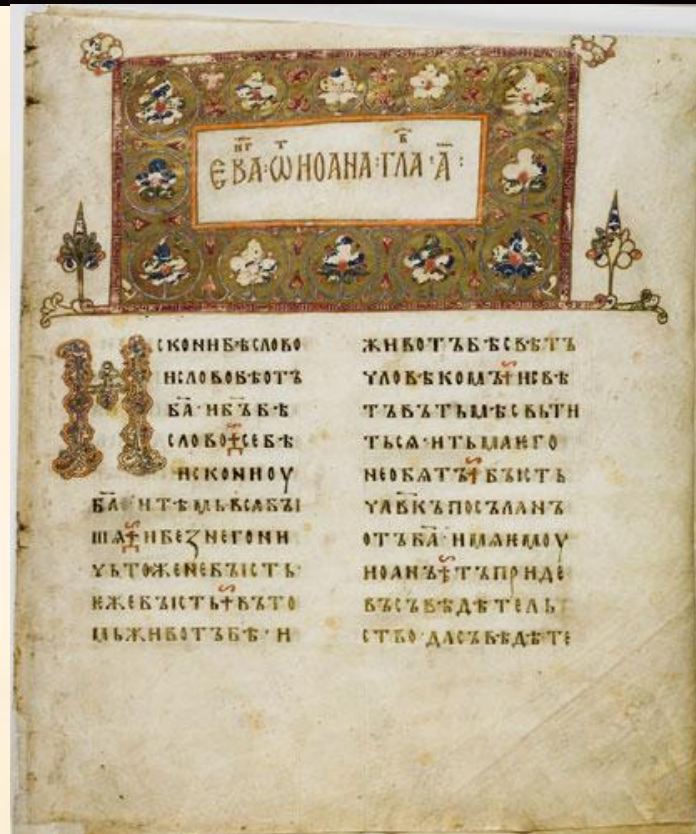 ЕВА҃НГ·ѾИОАНА·ГЛА҃В·А҃:
ИСКОНИБѢСЛОВО
ИСЛОВОБѢОТЪ
БА҃·ИБ҃ЪБѢ
СЛОВО СЕБѢ
ИСКОНИОУ
БА҃·ИТѢМЬВСАБꙐ
ША ИБЕꙀНЕГОНИ
ЧЬТОЖЕНЕБꙐСТЬ·
ЕЖЕБꙐСТЬ ВЪТО
МЬЖИВОТЪБѢ·И
ЖИВОТЪБѢСВѢТЪ
ЧЛОВѢКОМЪ ИСВѢ
ТЪВЪТЬМѢСВЬТИ
ТЬСѦ·ИТЬМАѤГО
НЕОБѦТЪ БꙐСТЬ
ЧЛВ҃КЪПОСЪЛАНЪ
ОТЪБА҃·ИМѦѤМОУ
ИОАНЪ ТЪПРИДЕ
ВЪСЪВѢДѢТЕЛЬ
СТВО·ДАСЪВѢДѢТЕ